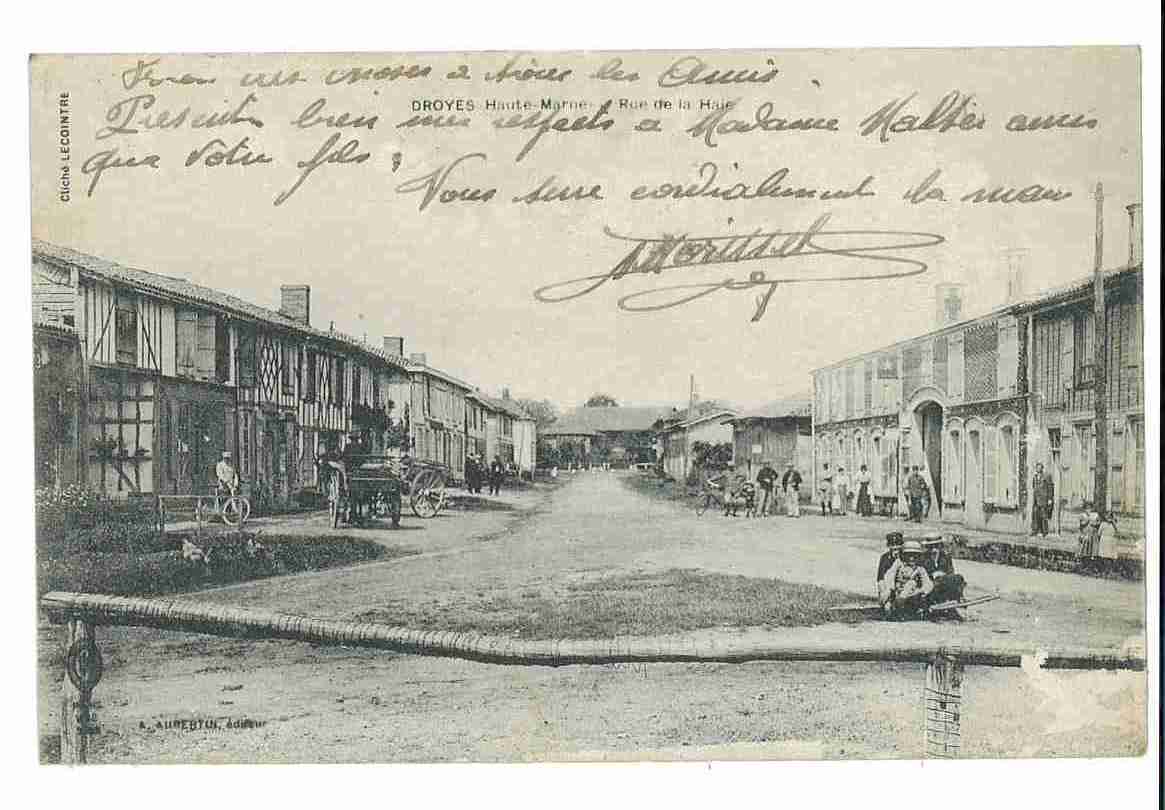 bien des choses à tous les Amis.
DROYES Haute-Marne - Rue de la Haie
Présentez bien mes respects à Madame
que votre fils;
Vous serre cordialement la main
Cliché LECOINTRE
A. AUBERTIN, éditeur